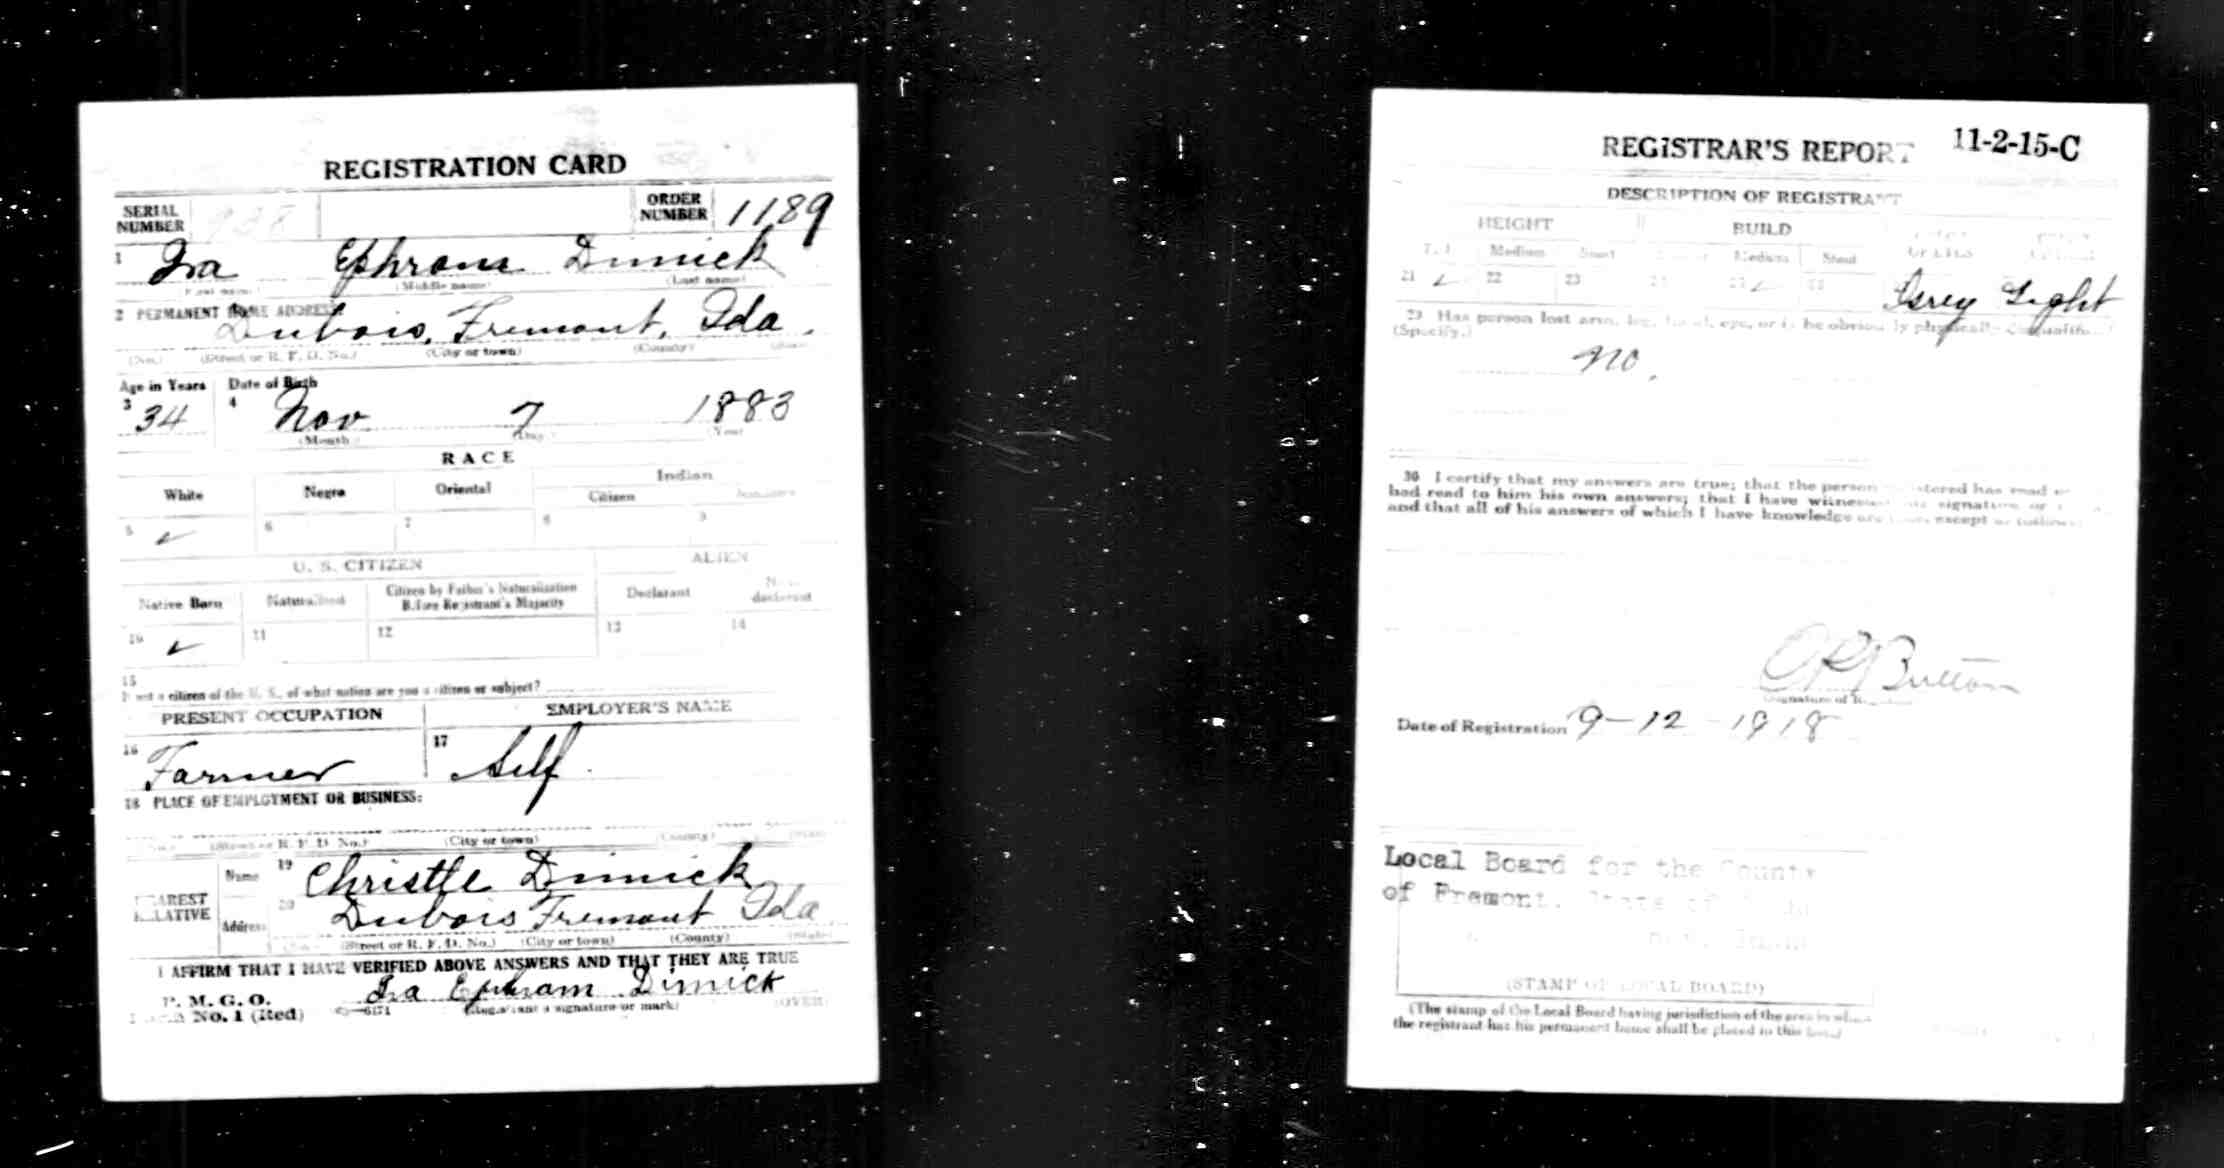 REGISTRATION CARD
SERIAL NUMBER 938 ORDER NUMBER 1189
1 Ira Ephram Dimick
(First name) (Middle name) (Last name)
2 PERMANENT HOME ADDRESS
Dubois, Fremont, Ida.
(No.) (Street or R. F. D. No.) (City or town) (County) (State)
Age in Years Date of Birth
3 34 4 Nov 7 1883
(Month) (Day) (Year)
RACE
White Negro Oriental Indian
Citizen
5 ✓ 6 7 8 9
U. S. CITIZEN ALIEN
Native Born Naturalized Citizen by Father's Naturalization Before Registrant's Majority Declarant Non-declarant
10 ✓ 11 12 13 14
15
If not a citizen of the U. S., of what nation are you a citizen or subject?
PRESENT OCCUPATION EMPLOYER'S NAME
16 Farmer 17 Self.
18 PLACE OF EMPLOYMENT OR BUSINESS:
(No.) (Street or R. F. D. No.) (City or town) (County) (State)
NEAREST RELATIVE Name 19 Christle Dimick
Address 20 Dubois Fremont Ida
(No.) (Street or R. F. D. No.) (City or town) (County) (State)
I AFFIRM THAT I HAVE VERIFIED ABOVE ANSWERS AND THAT THEY ARE TRUE
P. M. G. O.
Form No. 1 (Red) Ira Ephram Dimick
(Registrant's signature or mark) (OVER)
REGISTRAR'S REPORT 11-2-15-C
DESCRIPTION OF REGISTRANT
HEIGHT BUILD
Medium Short Medium Stout
21 ✓ 22 23 24 25 ✓ 26 Grey Light
29 Has person lost arm, leg, hand, eye, or is he obviously physically disqualified?
(Specify.)
No.
30 I certify that my answers are true; that the person registered has read or
had read to him his own answers; that I have witnessed his signature or
and that all of his answers of which I have knowledge are true, except as follows:
Britton
(Signature of Registrar)
Date of Registration 9-12-1918
Local Board for the County
of Fremont, State of
(STAMP OF LOCAL BOARD)
(The stamp of the Local Board having jurisdiction of the area in which
the registrant has his permanent home shall be placed in this